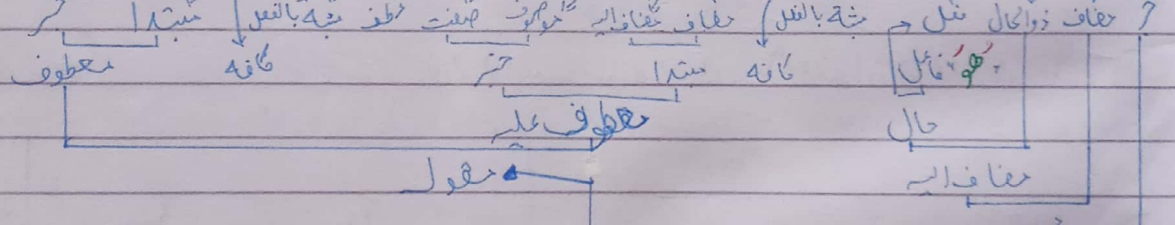 مضاف ذوالحال فعل مشبہ بالفعل مضاف مضاف الیہ موصوف صفت عطف مشبہ بالفعل مبتدا خبر
"هُوَ" فاعل کافہ مبتدا خبر کافہ معطوف
حال معطوف علیہ
مضاف الیہ مقولہ